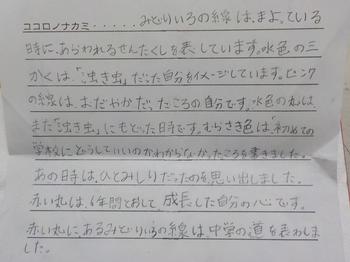 ココロノナカミ・・・・・・みどりいろの線は、まよっている
時に、あらわれるせんたくしを表しています。水色の三
かくは、「泣き虫」だった自分をイメージしています。ピンク
の線は、おだやかだったころの自分です。水色の丸は
また「泣き虫」にもどった時です。むらさき色は「初めての
学校にどうしていいのかわからなかったころを書きました。
あの時は、ひとみしりだったのを思い出しました。
赤い丸は、6年間とおして、成長した自分の心です。
赤い丸に、あるみどりいろの線は、中学の道を表わしま
した。